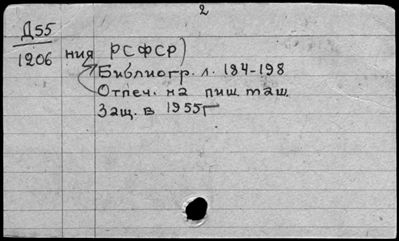 2
Д55
1206
ния РСФСР)
Библиогр. л. 184-198
Отпеч. на пиш. маш.
Защ. в 1955г